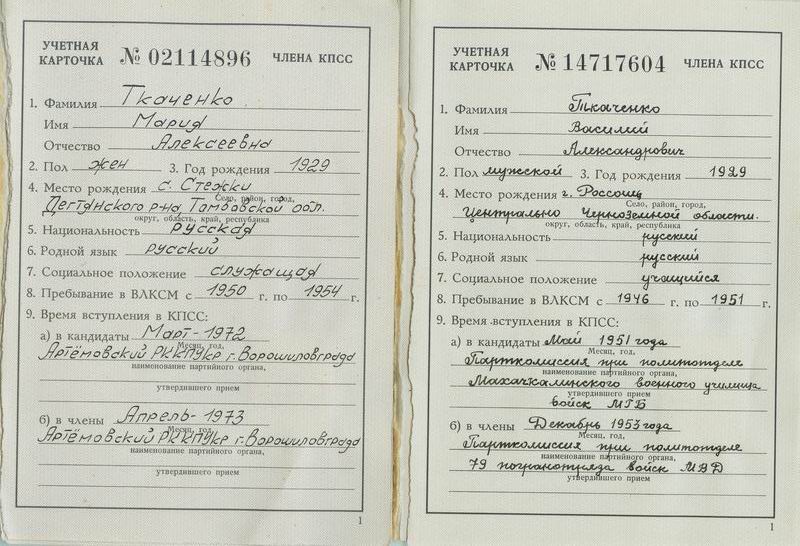 УЧЕТНАЯ КАРТОЧКА № 02114896 ЧЛЕНА КПСС
1. Фамилия Ткаченко
Имя Мария
Отчество Алексеевна
2. Пол жен 3. Год рождения 1929
4. Место рождения с. Стежки
Село, район, город,
Дегтянского р-на Тамбовской обл.
округ, область, край, республика
5. Национальность русская
6. Родной язык русский
7. Социальное положение служащая
8. Пребывание в ВЛКСМ с 1950 г. по 1954 г.
9. Время вступления в КПСС:
а) в кандидаты Март-1972
Месяц, год,
Артёмовский РККПУкр г. Ворошиловграда
наименование партийного органа,
утвердившего прием
б) в члены Апрель-1973
Месяц, год,
Артёмовский РККПУкр г. Ворошиловграда
наименование партийного органа,
утвердившего прием
1
УЧЕТНАЯ КАРТОЧКА № 14717604 ЧЛЕНА КПСС
1. Фамилия Ткаченко
Имя Василий
Отчество Александрович
2. Пол мужской 3. Год рождения 1929
4. Место рождения г. Россошь
Село, район, город,
Центрально Черноземной области.
округ, область, край, республика
5. Национальность русский
6. Родной язык русский
7. Социальное положение учащийся
8. Пребывание в ВЛКСМ с 1946 г. по 1951 г.
9. Время вступления в КПСС:
а) в кандидаты Май 1951 года
Месяц, год,
Парткомиссия при политотделе
наименование партийного органа,
Махачкалинского военного училища
утвердившего прием
войск МГБ
б) в члены Декабрь 1953 года
Месяц, год,
Парткомиссия при политотделе
наименование партийного органа,
79 погранотряда войск МВД
утвердившего прием
1